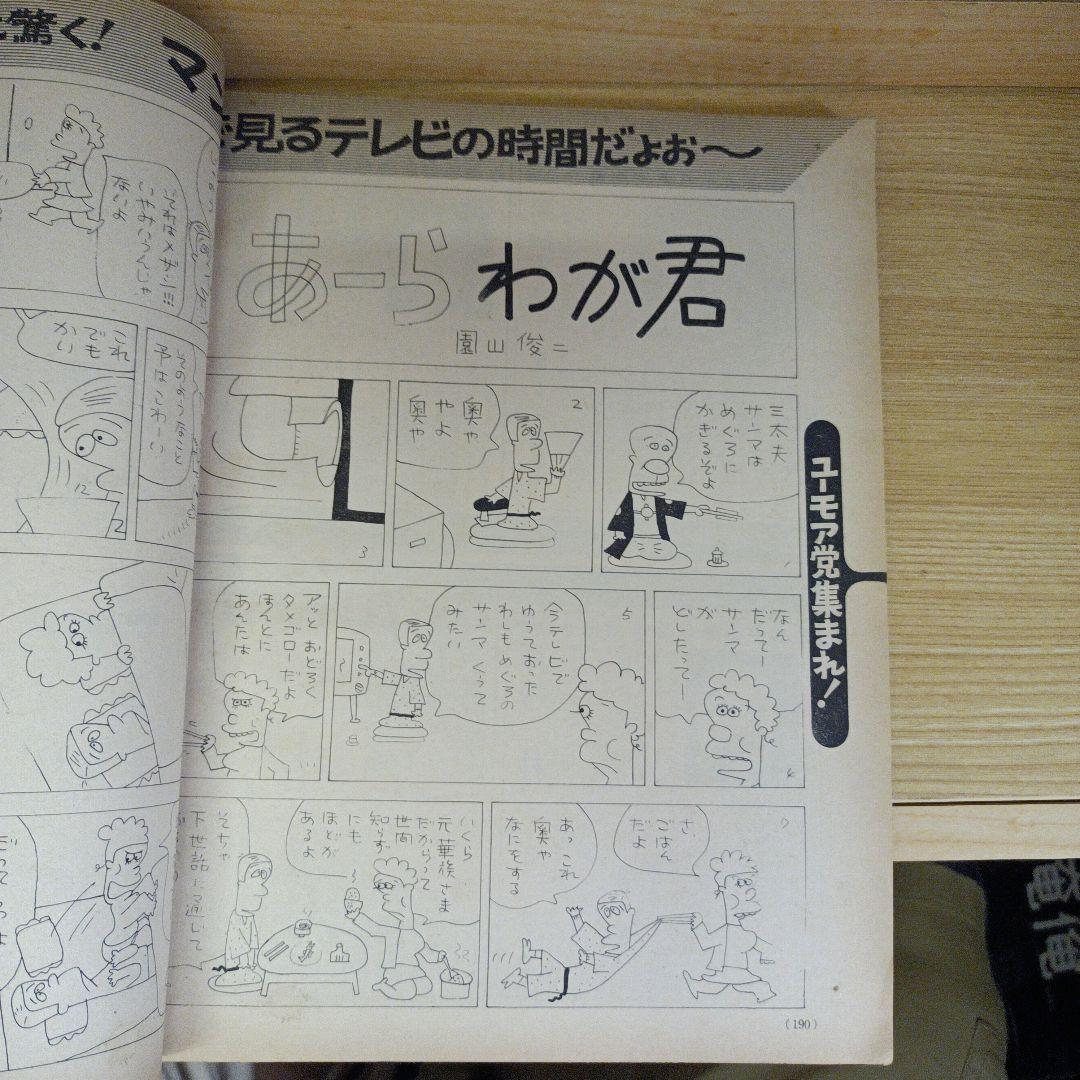 驚く!
マン
見るテレビの時間だよお〜
あーら わが君
園山俊二
ユーモア党集まれ!
三太夫
サンマは
めぐろに
かぎるぞよ
1
2
奥や
やよ
奥や
3
なん
だってー
サンマ
が
どしたってー
4
5
今テレビで
ゆっておった
わしもめぐろの
サンマくって
みたい
アッと おどろく
タメゴローだよ
ほんとに
あんたは
7
さ、
ごはん
だよ
あっこれ
奥や
なにをする
いくら
元華族さま
だからって
世間
知らず
にも
ほどが
あるよ
そちゃ
下世話に通じて
(190)
ないよ
これ
でも
かい
予はこわーい
12